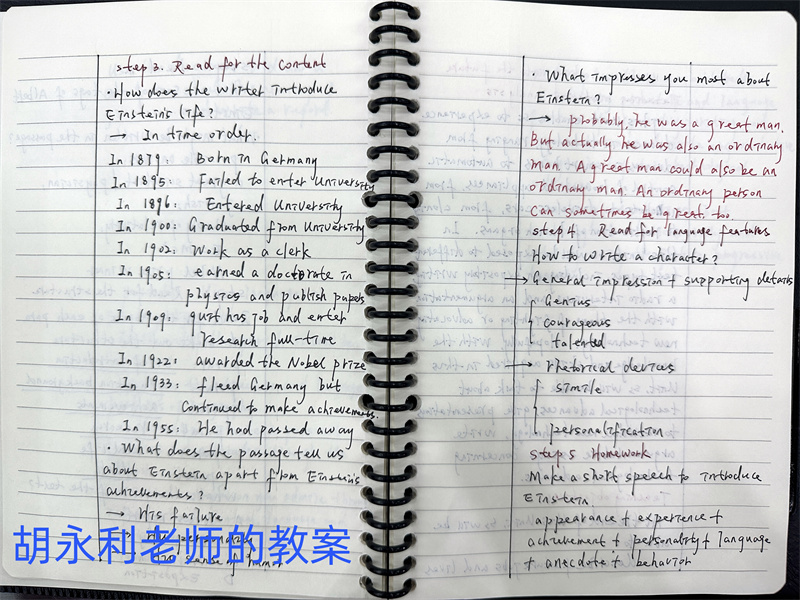 step 3. Read for the content
· How does the writer introduce
Einstein's life?
→ In time order.
In 1879: Born in Germany
In 1895: Failed to enter University
In 1896: Entered University
In 1900: Graduated from University
In 1902: Work as a clerk
In 1905: earned a doctorate in
physics and publish papers
In 1909: quit his job and enter
research full-time
In 1922: awarded the Nobel prize
In 1933: fleed Germany but
continued to make achievements.
In 1955: He had passed away
· What does the passage tell us
about Einstein apart from Einstein's
achievements?
→ His failure
sense of humor
胡永利老师的教案
· What impresses you most about
Einstein?
→ probably, he was a great man.
But actually he was also an ordinary
man. A great man could also be an
ordinary man. An ordinary person
can sometimes be great, too
step 4. Read for language features
How to write a character?
→ General impression + supporting details
Genius
courageous
talented
→ rhetorical devices
simile
personalification
step 5 Homework
Make a short speech to introduce
Einstein
appearance + experience +
achievement + personality + language
+ anecdote + behavior